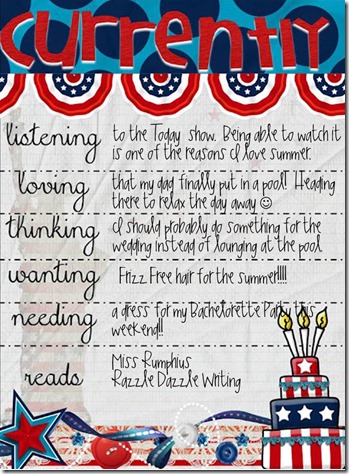 currently
listening to the Today show. Being able to watch it
is one of the reasons I love summer.
loving that my dad finally put in a pool! Heading
there to relax the day away ☺
thinking I should probably do something for the
wedding instead of lounging at the pool
wanting Frizz Free hair for the summer!!!!
needing a dress for my Bachelorette Party this
weekend!!
reads Miss Rumphius
Razzle Dazzle Writing